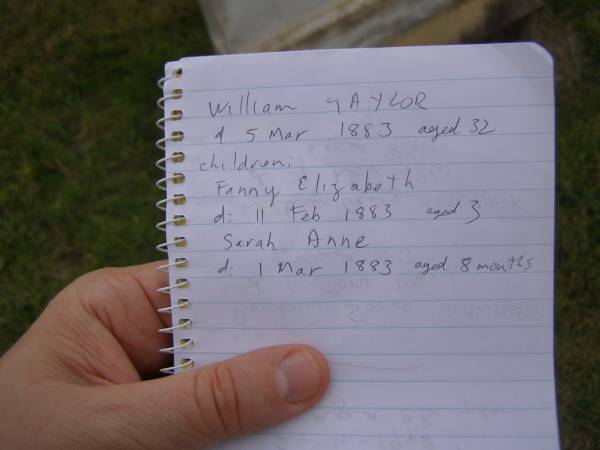 William GAYLOR
d 5 Mar 1883 aged 32
children:
Fanny Elizabeth
d: 11 Feb 1883 aged 3
Sarah Anne
d: 1 Mar 1883 aged 8 months